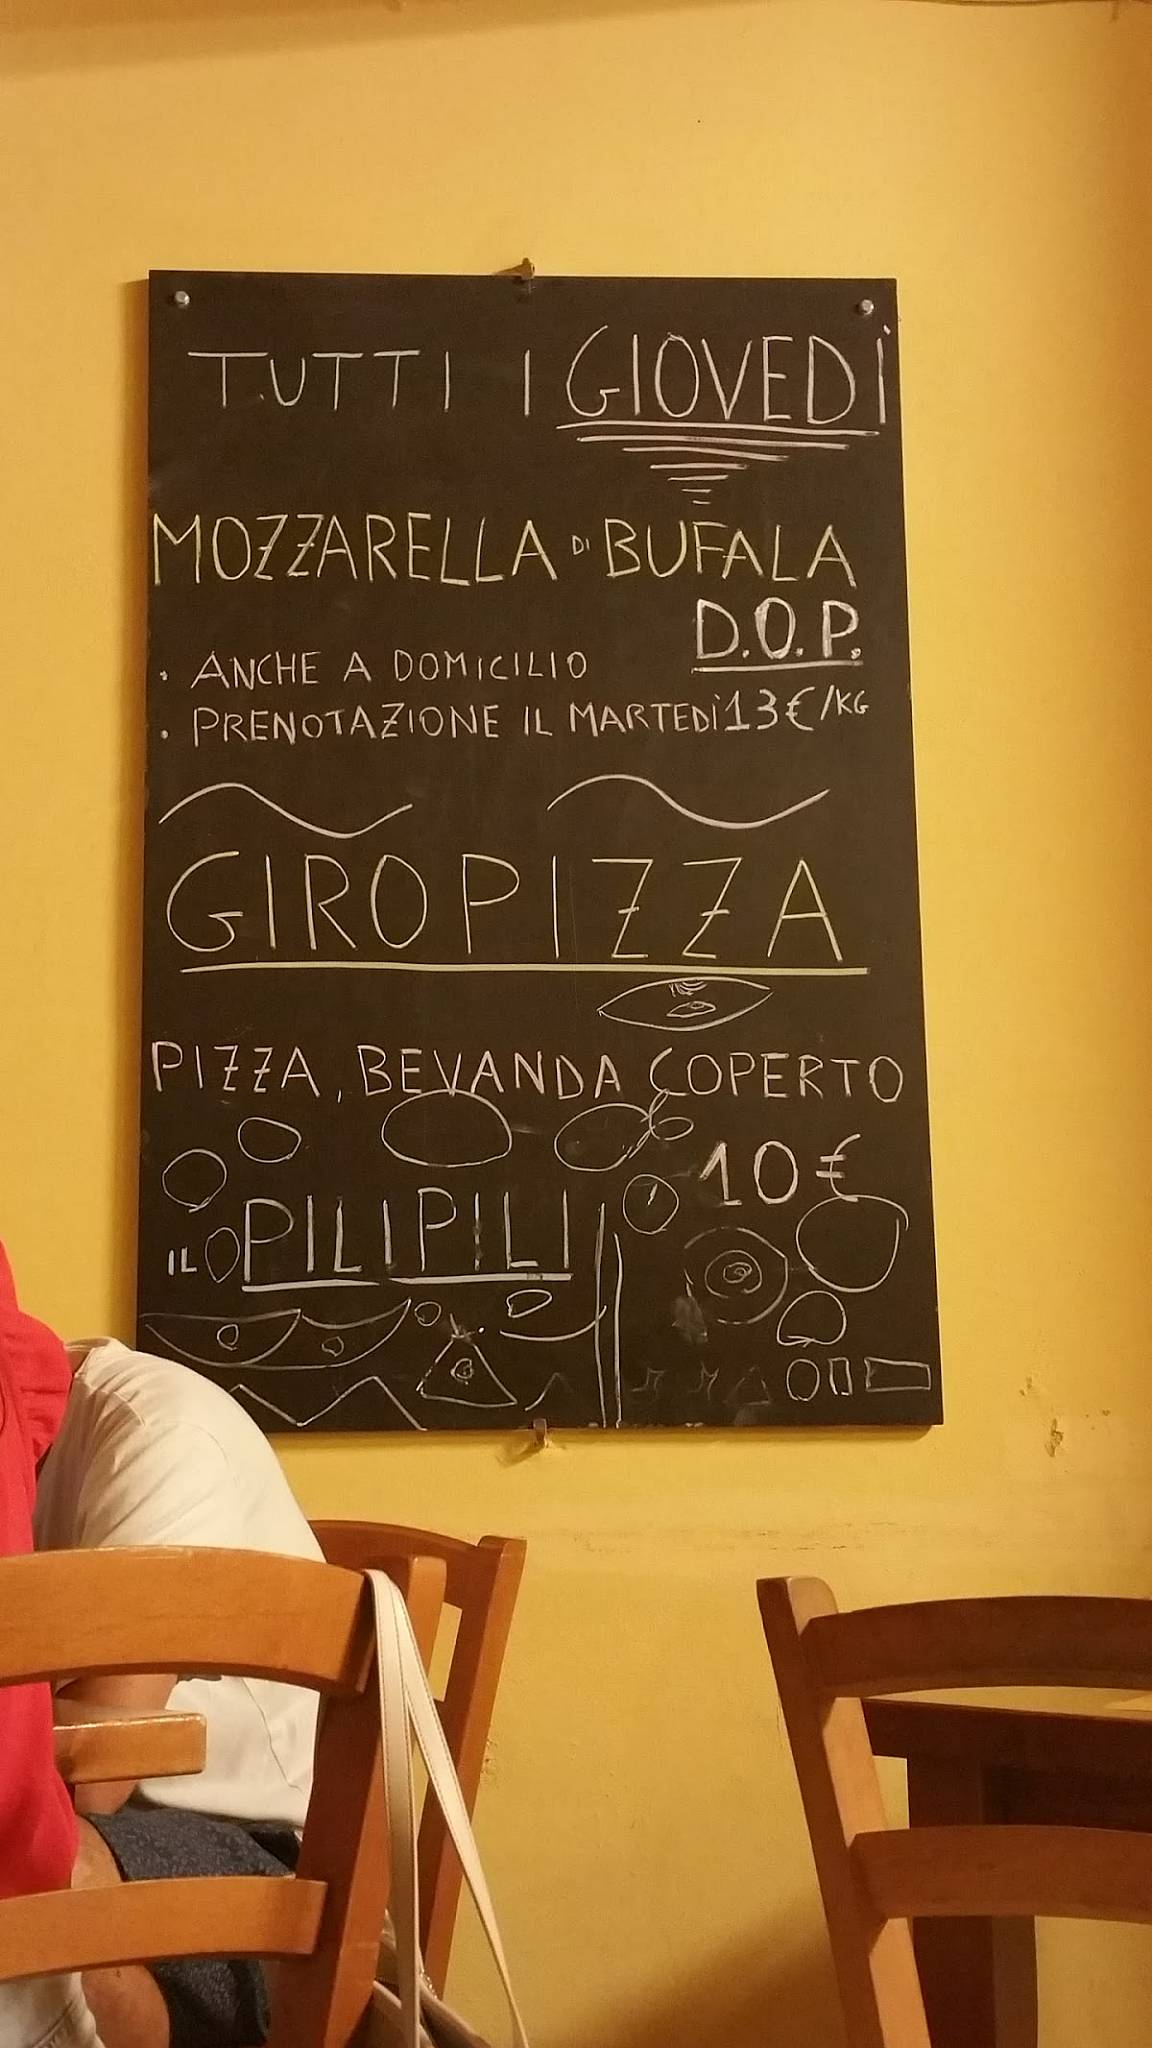 TUTTI I GIOVEDÌ
MOZZARELLA DI BUFALA
D.O.P.
• ANCHE A DOMICILIO
• PRENOTAZIONE IL MARTEDÌ 13€/KG
GIROPIZZA
PIZZA, BEVANDA COPERTO
10€
IL PILIPILI